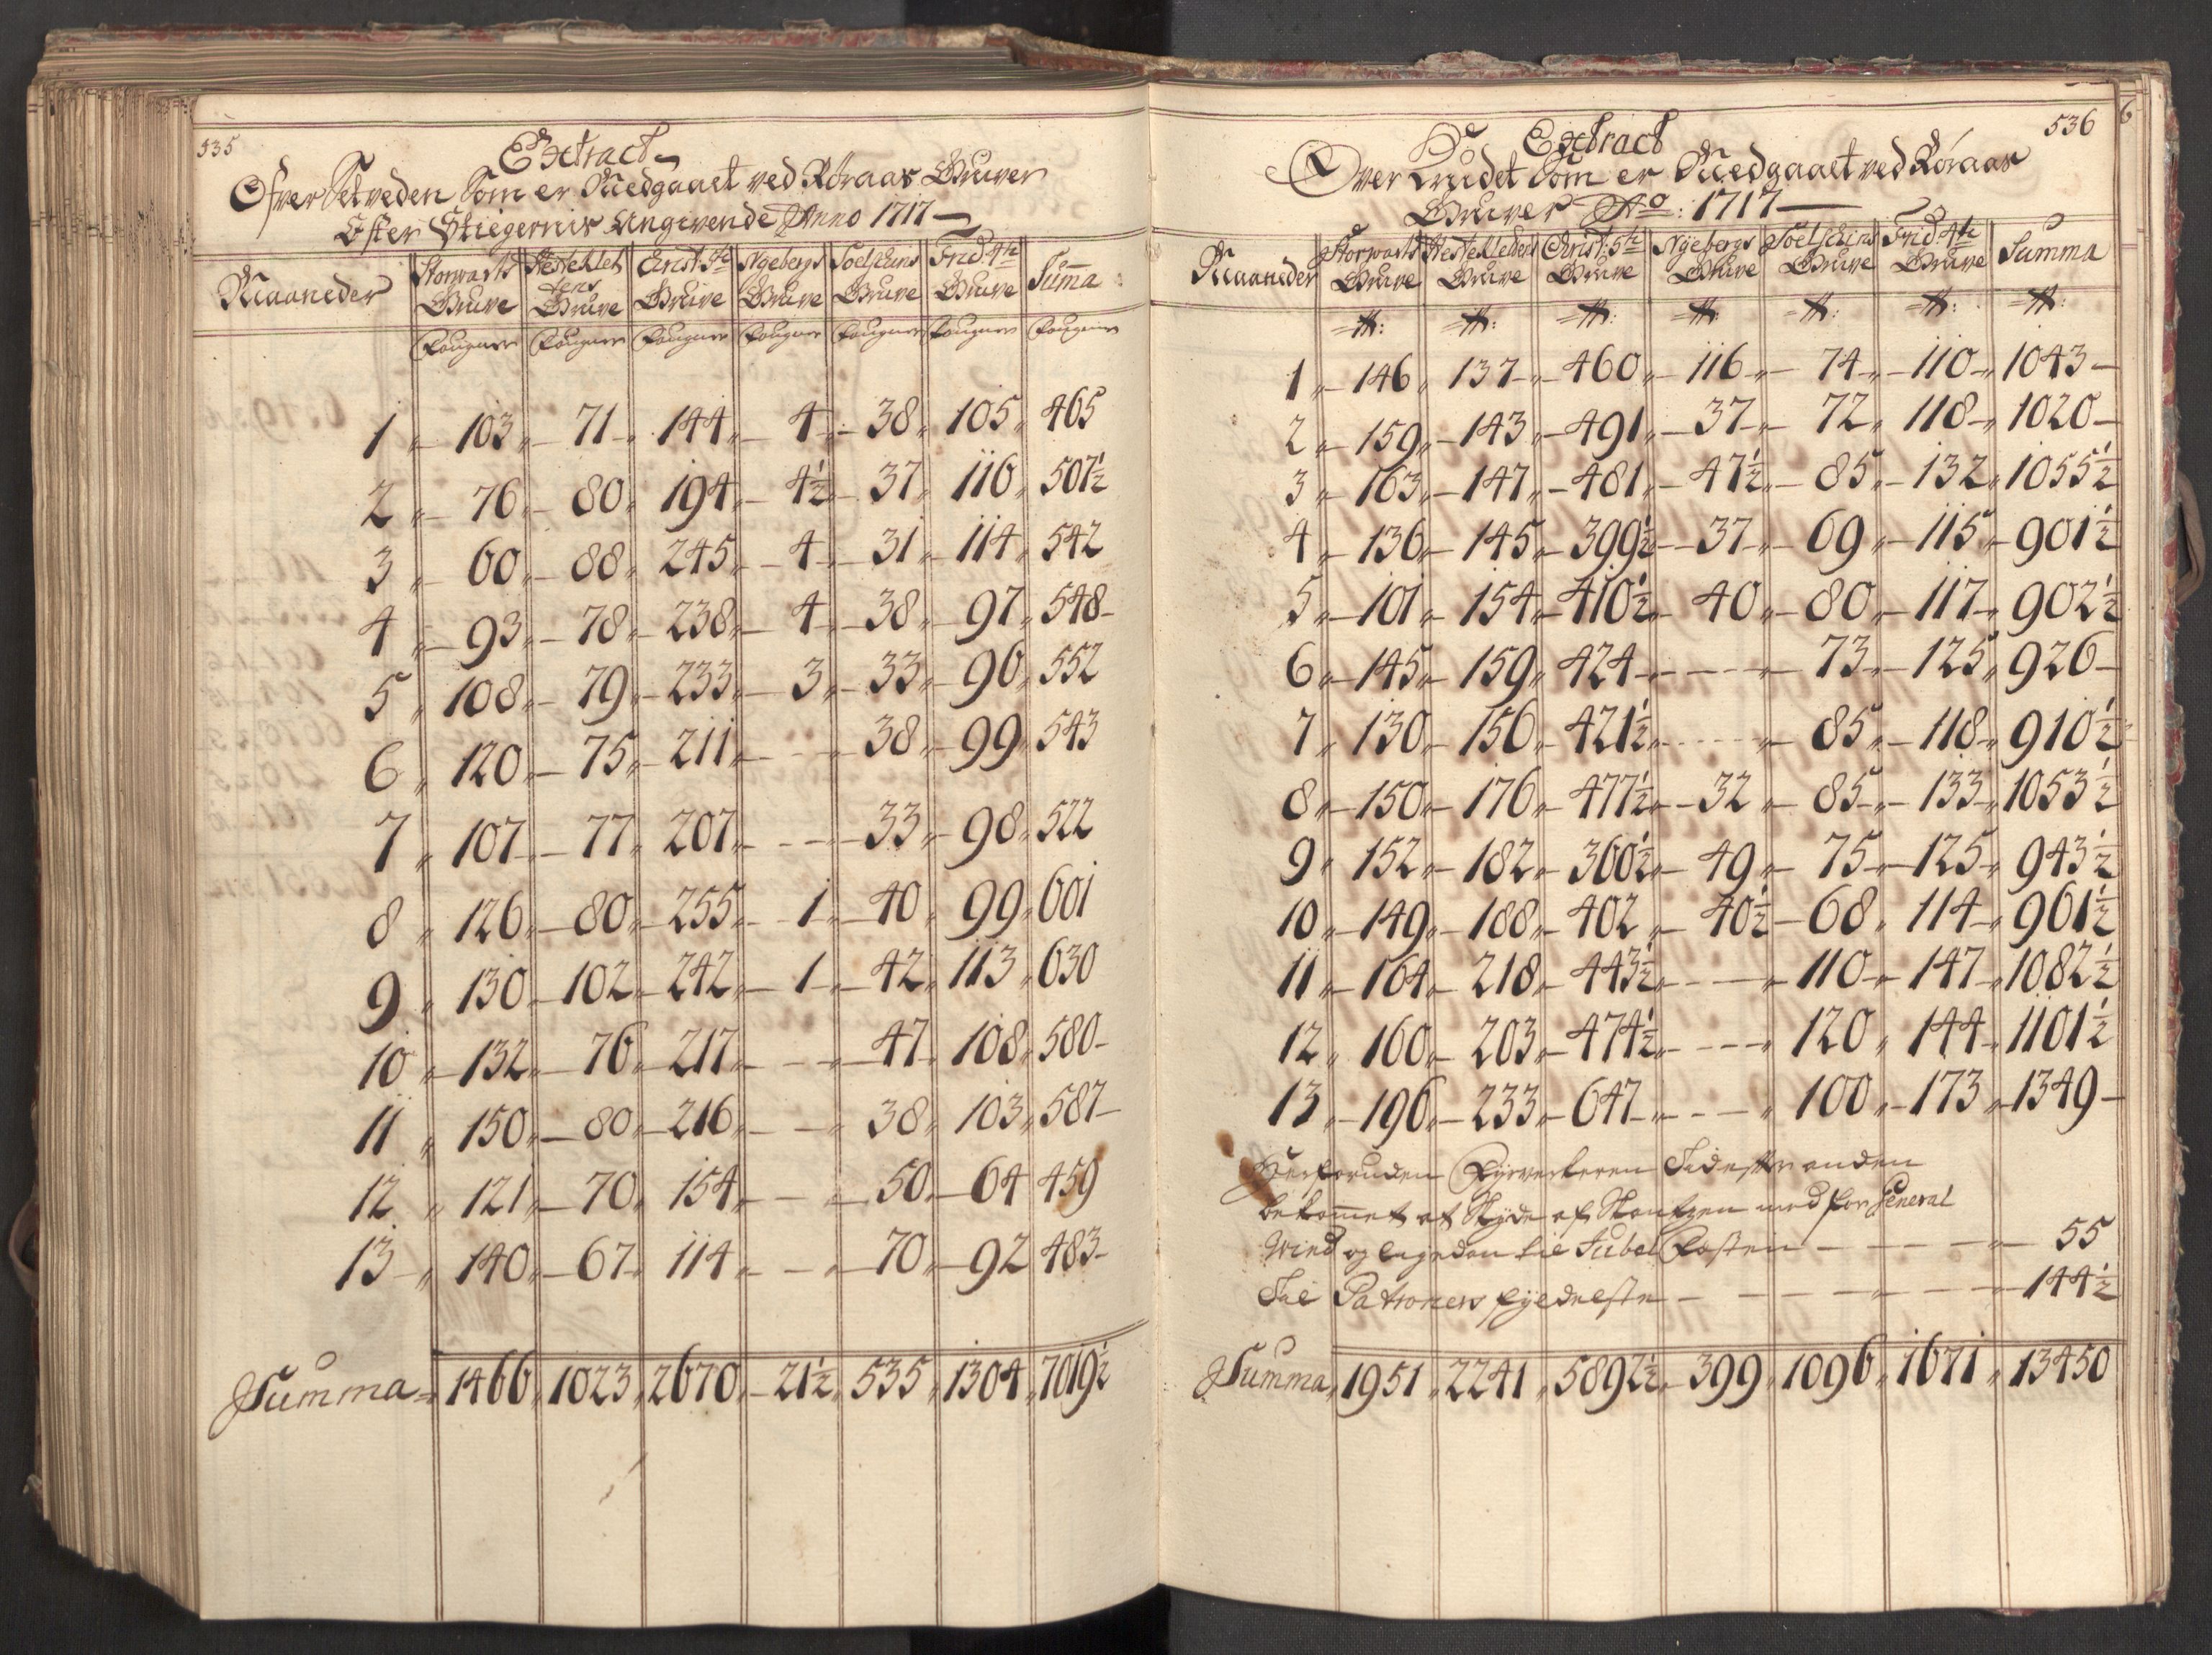 535
Extract
Ofver Setveden Som er Medgaaet ved Røraas Gruver
Efter Stiegernis Angivende Anno 1717
Maaneder Storvarts Gruve Hestekletens Gruve Christ: 5te Gruve Nyebergs Gruve Soelskins Gruve Frid: 4te Gruve Summa
Faugner Faugner Faugner Faugner Faugner Faugner Faugner
1 103 71 144 4 38 105 465
2 76 80 194 4½ 37 116 507½
3 60 88 245 4 31 114 542
4 93 78 238 4 38 97 548
5 108 79 233 3 33 96 552
6 120 75 211 - 38 99 543
7 107 77 207 - 33 98 522
8 126 80 255 1 40 99 601
9 130 102 242 1 42 113 630
10 132 76 217 - 47 108 580
11 150 80 216 - 38 103 587
12 121 70 154 - 50 64 459
13 140 67 114 - 70 92 483
Summa 1466 1023 2670 21½ 535 1304 7019½
536
Extract
Over Krudet Som er Medgaaet ved Røraas
Gruver Ao: 1717
Maaneder Storvarts Gruve Hestekletens Gruve Christ: 5te Gruve Nyebergs Gruve Soelskins Gruve Frid: 4te Gruve Summa
℔: ℔: ℔: ℔: ℔: ℔: ℔:
1 146 137 460 116 74 110 1043
2 159 143 491 37 72 118 1020
3 163 147 481 47½ 85 132 1055½
4 136 145 399½ 37 69 115 901½
5 101 154 410½ 40 80 117 902½
6 145 159 424 - 73 125 926
7 130 156 421½ - 85 118 910½
8 150 176 477½ 32 85 133 1053½
9 152 182 360½ 49 75 125 943½
10 149 188 402 40½ 68 114 961½
11 164 218 443½ - 110 147 1082½
12 160 203 474½ - 120 144 1101½
13 196 233 647 - 100 173 1349
Herforuden Fyrverkeren
bekommet at Skyde af Skantzen med for General
Wind og til Jubel Festen 55
Til Patroners 144½
Summa 1951 2241 5892½ 399 1096 1671 13450